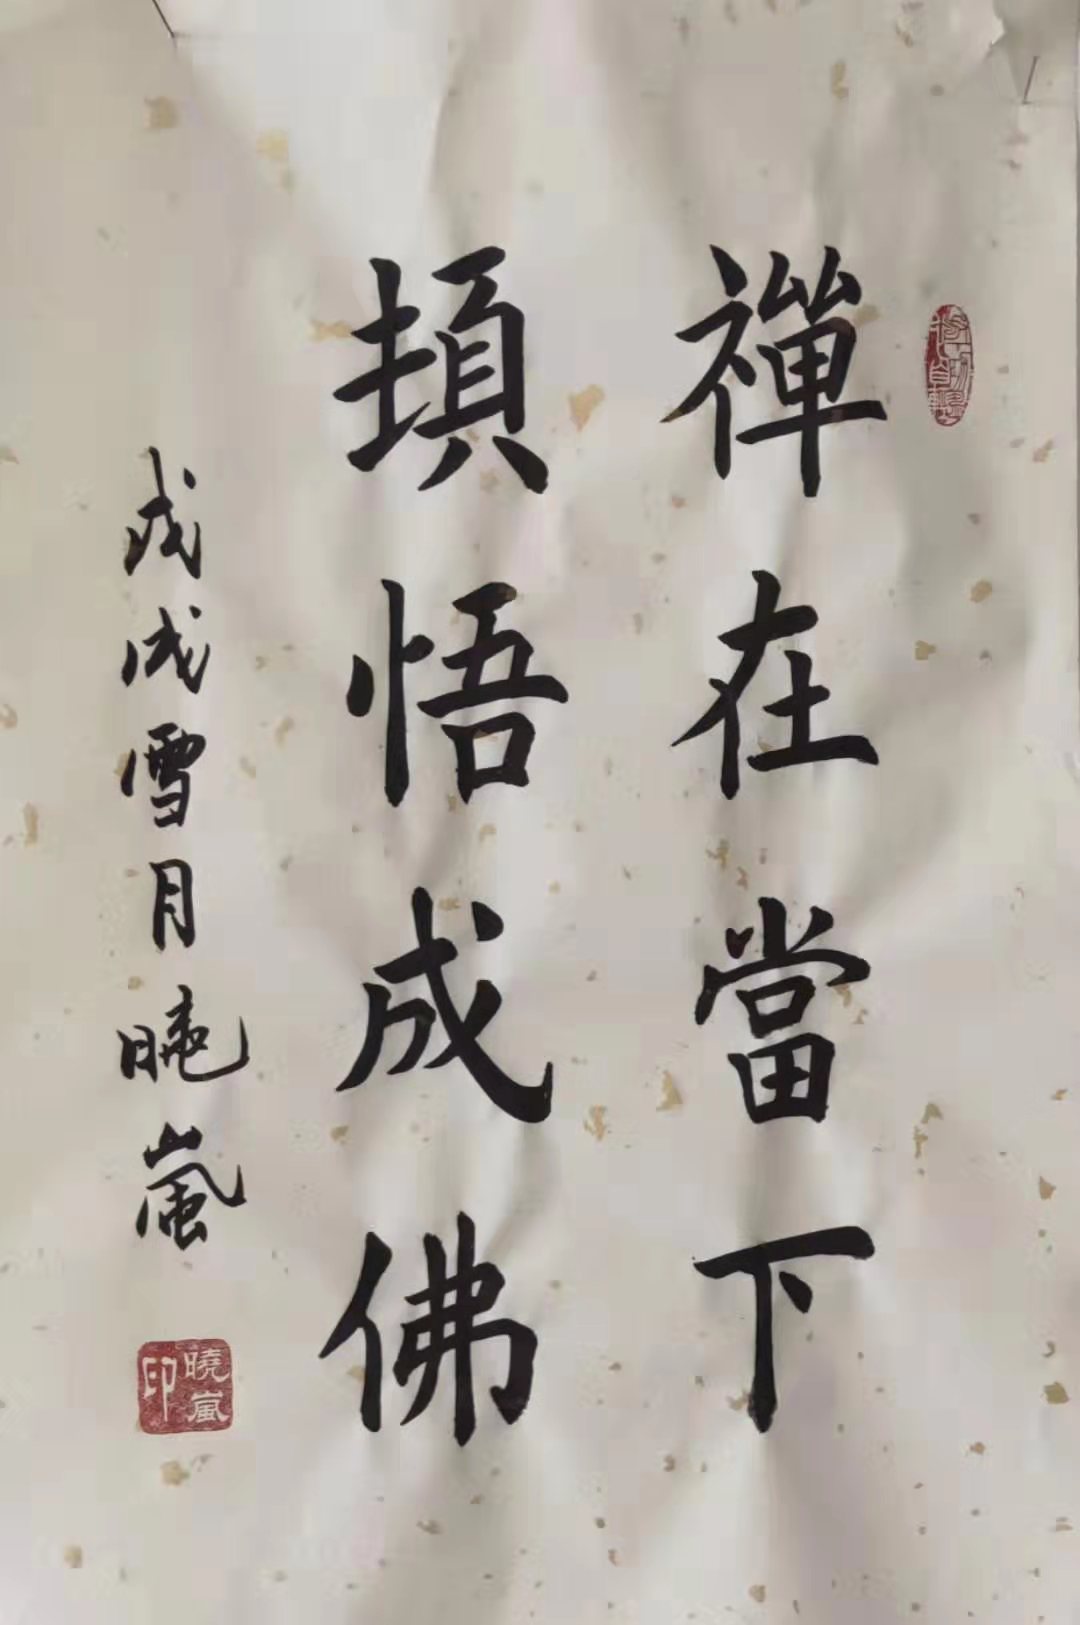 禪在當下
頓悟成佛
戊戌雪月曉嵐
曉嵐印